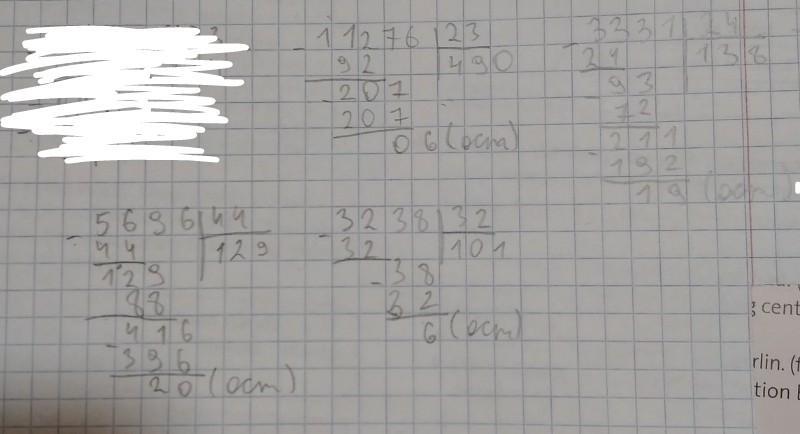 11276 | 23
- 92 | 490
- 207
207
06 (ост)
3331 | 24
- 24 | 138
93
- 72
211
- 192
19 (ост)
5696 | 44
- 44 | 129
129
88
- 416
396
20 (ост)
3238 | 32
- 32 | 101
- 38
32
6 (ост)
cent
rlin. (f
tion